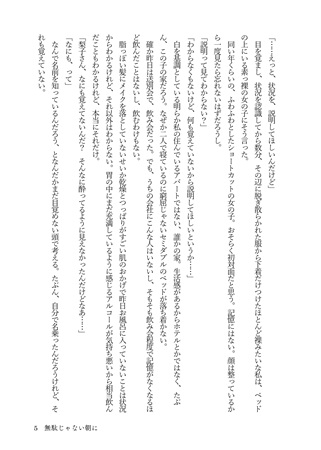 「……えっと、状況を、説明してほしいんだけど」
目を覚まし、状況を認識してから数分、その辺に脱ぎ散らされた服から下着だけつけたほとんど裸みたいな私は、ベッド
の上にいる素っ裸の女の子にそう言った。
同い年くらいの、ふわふわとしたショートカットの女の子。おそらく初対面だと思う。記憶にはない。顔は整っているか
ら一度見たら忘れないはずだろうし。
「説明って見てわからない？」
「わからなくもないけど、何も覚えていないから説明してほしいというか……」
白を基調としている明らか私の住んでいるアパートではない、誰かの家。生活感があるからホテルとかではなく、たぶ
ん、この子の家だろう。なぜか二人で寝ているのに窮屈じゃないセミダブルのベッドが落ち着かない。
確か昨日は送別会で、飲み会だった。でも、うちの会社にこんな人はいないし、そもそも飲み会程度で記憶がなくなるほ
ど飲んだことはないし、飲むわけもない。
脂っぽい髪にメイクを落としていないせいか乾燥とつっぱりがすごい肌のおかげで昨日お風呂に入っていないことは状況
からわかるけれど、それ以外はわからない。胃の中にまだ充満しているように感じるアルコールが気持ち悪いから相当飲ん
だこともわかるけれど、本当にそれだけ。
「梨子さん、なにも覚えてないんだ？　そんなに酔ってるように見えなかったんだけどなあ……」
「なにも、って」
なんで名前を知っているんだろう、となんだかまだ目覚めない頭で考える。たぶん、自分で名乗ったんだろうけれど、そ
れも覚えていない。
5　無駄じゃない朝に